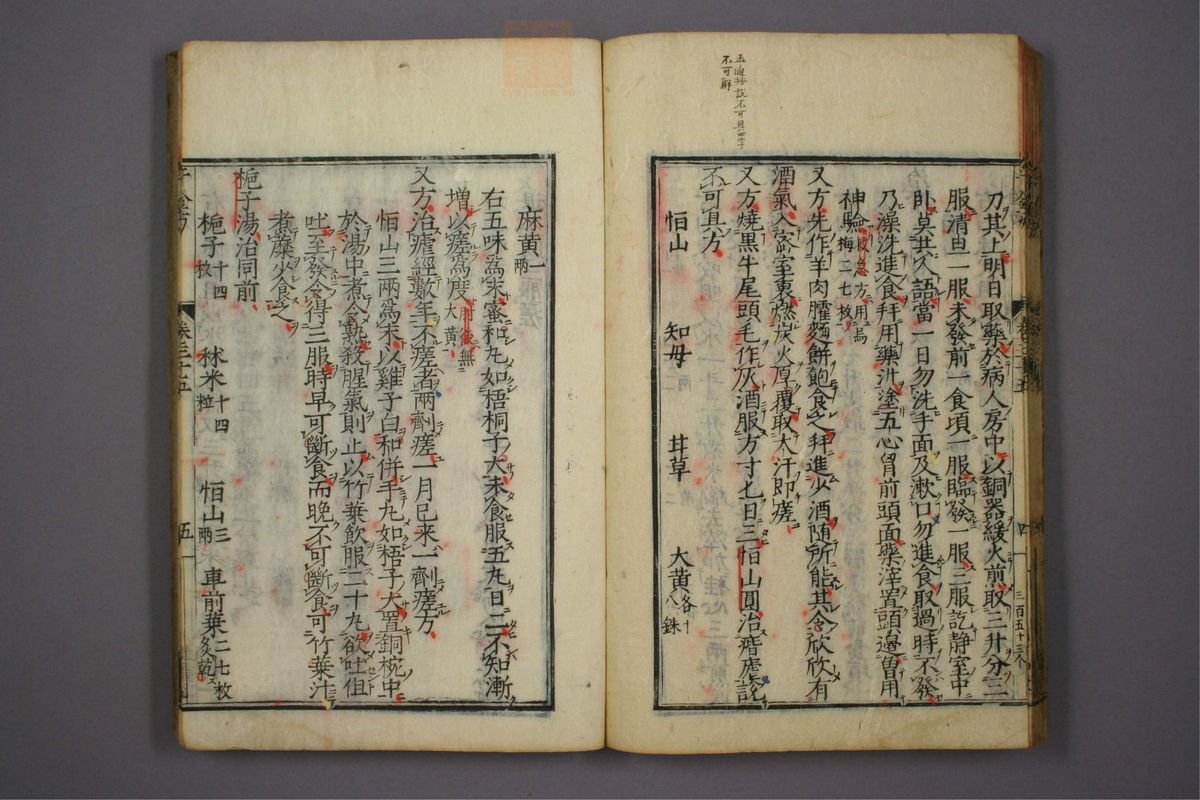 刀其上明日取藥於病人房中以銅器緩火煎取三升分三
服清旦一服未發前一食頃一服臨發一服三服訖静室中
卧莫共人語當一日勿洗手面及漱口勿進食取過時不發
乃澡洗進食拜用藥汁塗五心胷前頭面藥滓置頭邊曽用
神驗救急方用烏梅二七枚
又方先作羊肉臛麵餅飽食之拜進少酒随所能其令欣欣有
酒氣入密室裏燃炭火厚覆取大汗即瘥
又方燒黒牛尾頭毛作灰酒服方寸匕日三恒山圓治瘧說
不可具方
恒山 知母 甘草 大黄各十八銖
麻黄一兩
右五味為末蜜和丸如梧桐子大未食服五丸日二不知漸
増以瘥為度肘後無大黄
又方治瘧經數年不瘥者兩劑瘥一月已来一劑瘥方
恒山三兩為末以雞子白和併手丸如梧子大置銅椀中
於湯中煮令熟殺腥氣則止以竹葉飲服二十丸欲吐但
吐至發令得三服時早可斷食而晩不可斷食可竹葉汁
煮糜少食之
梔子湯治同前
梔子十四枚 秫米十四粒 恒山三兩 車前葉二七枚炙乾
千金方
卷三十五
四
五
三百五十三个
不可解